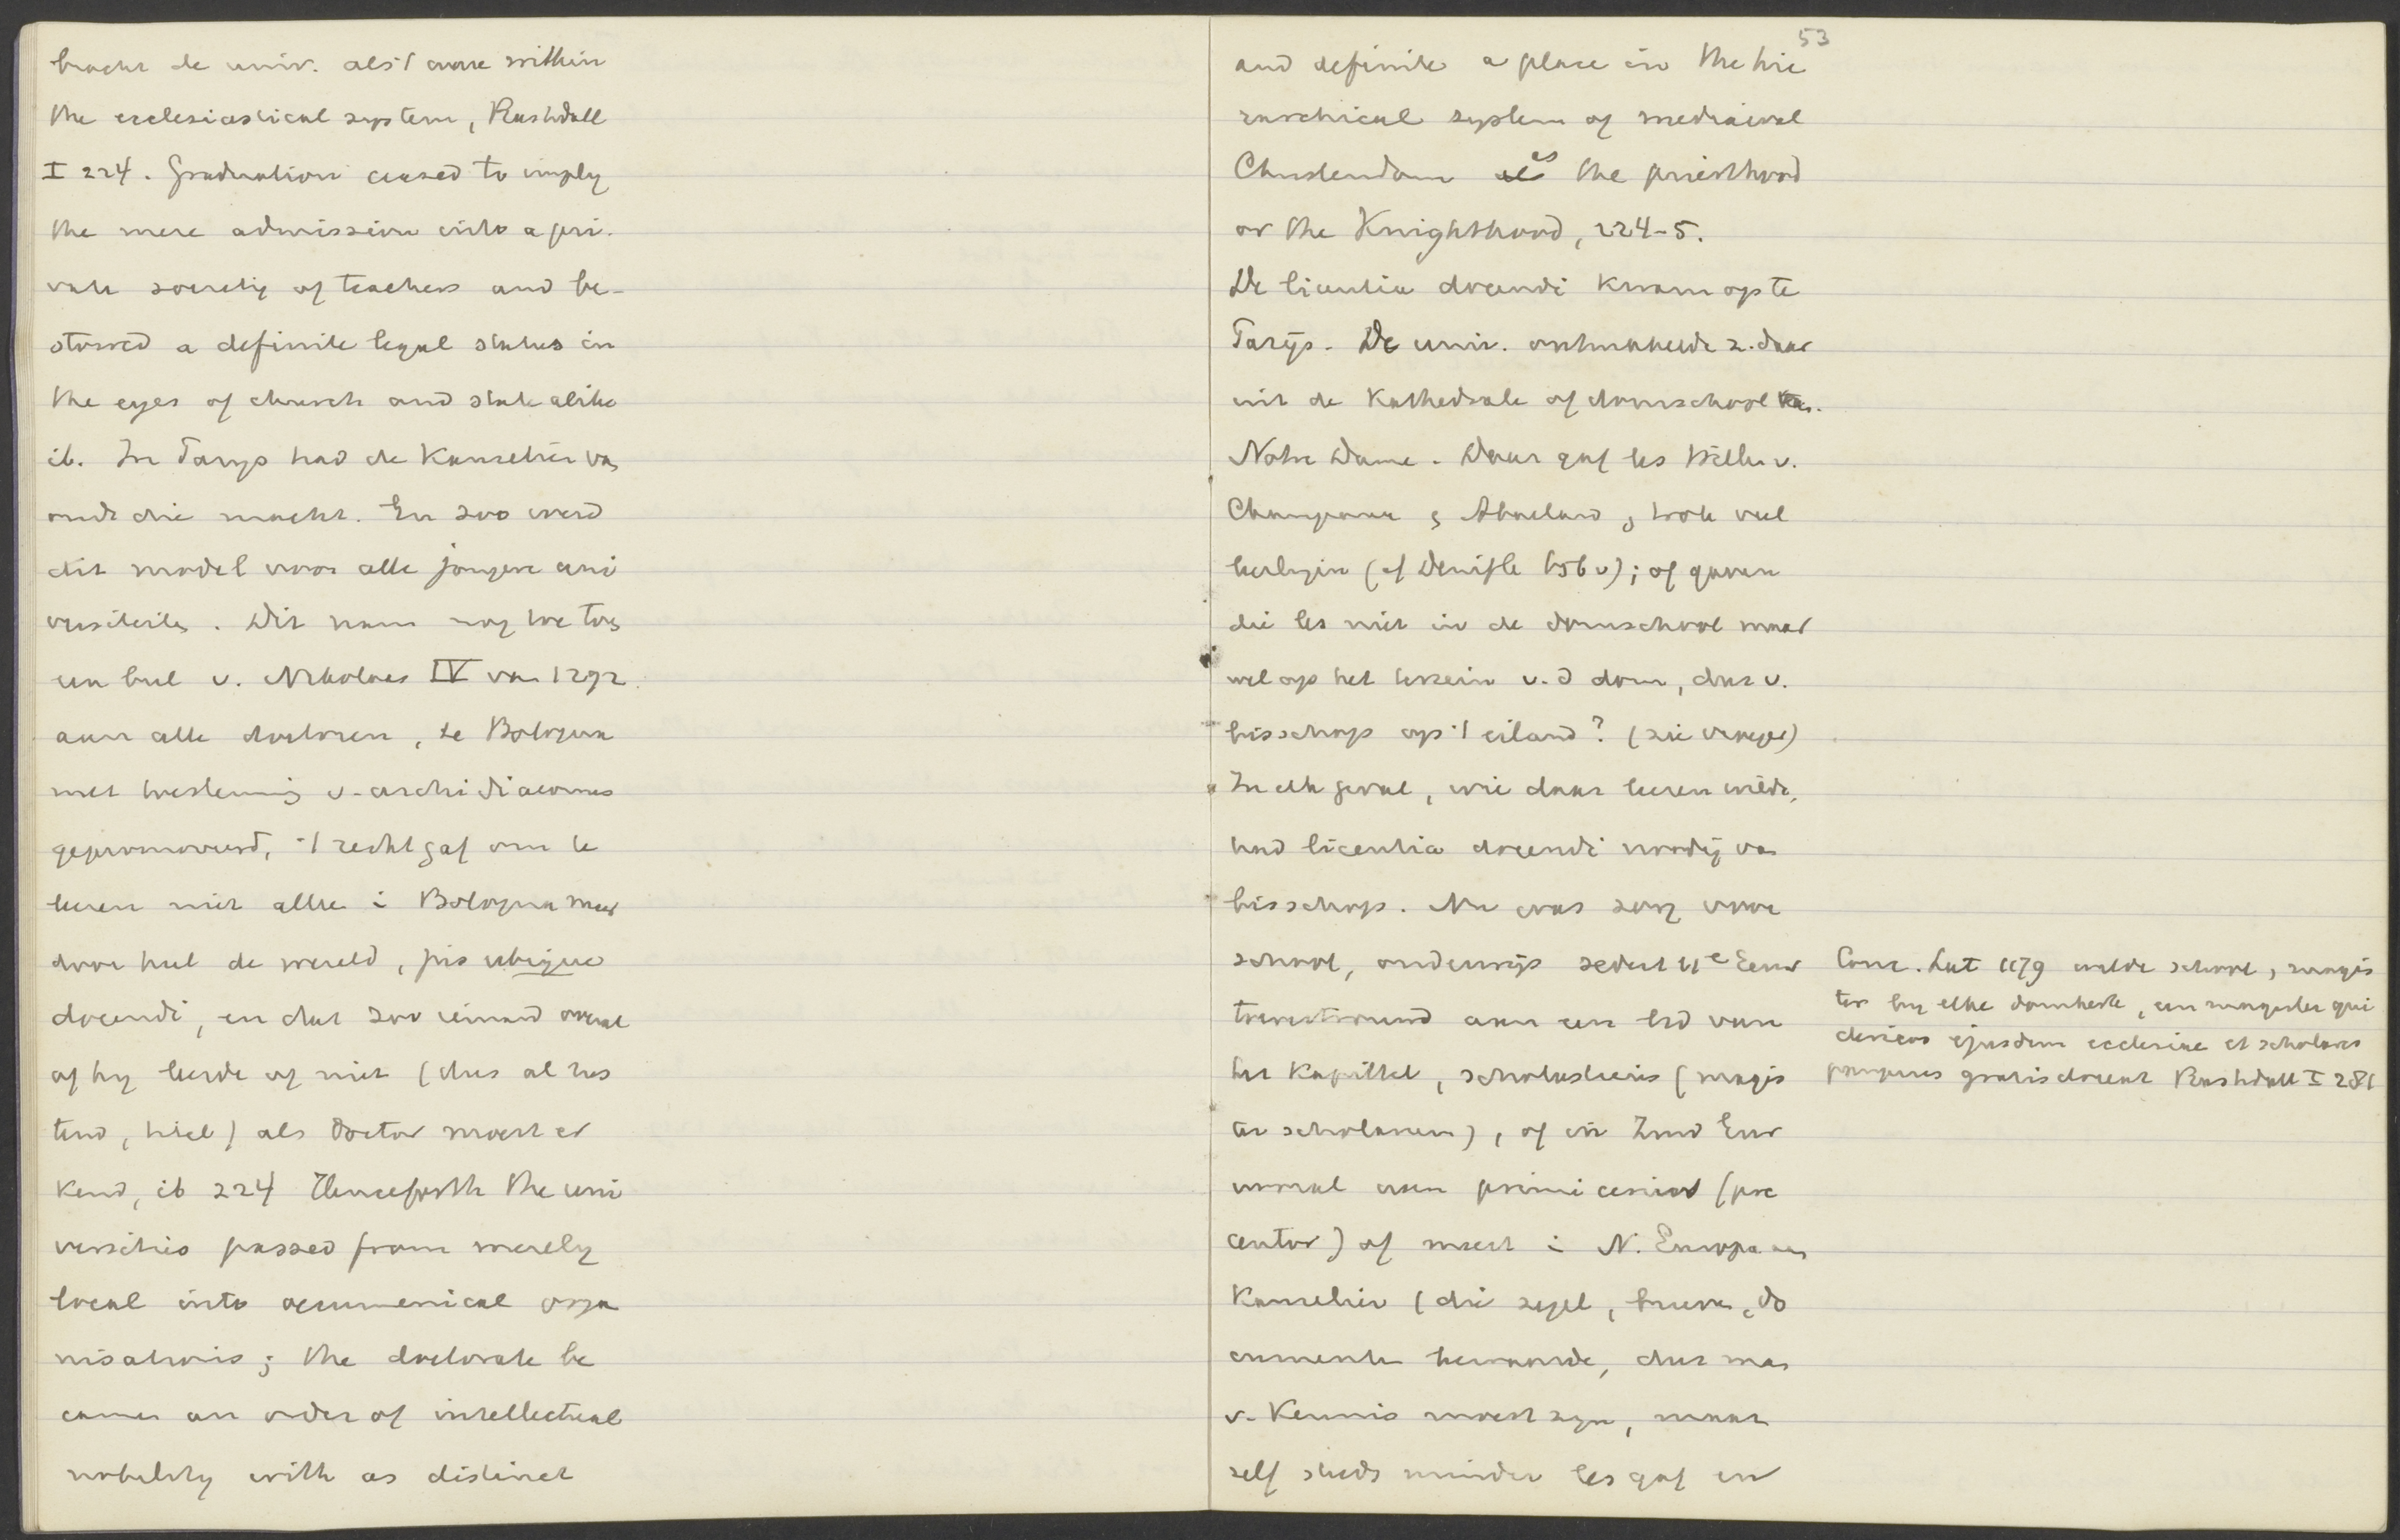 bracht de univ. als 't ware within
the ecclesiastical system, Rashdall
I 224. Graduation ceased to imply
the mere admission into a pri-
vate society of teachers and be-
stowed a definite legal status in
the eyes of church and state alike
ib. In Parijs had de Kanselier van
ouds die macht. En zoo werd
dit model voor alle jongere uni
versiteiten. Dit nam nog toe toen
een bul v. Nikolaas IV van 1292
aan alle doctoren, te Bologna
met toestemming v. archidiaconus
gepromoveerd, 't recht gaf om te
leeren niet alleen i Bologna maar
door heel de wereld, jus ubique
docendi, en dat zoo iemand overal
of hij leerde of niet (dus al rus
tend, hield) als Doctor moest er
kend, ib 224 Henceforth the uni
versities passed from merely
local into oecumenical orga
nisations; the doctorate be
came an order of intellectual
nobility with as distinct
53
and definite a place in the hie
rarchical system of mediaeval
Christendom as the priesthood
or the Knighthood, 224-5.
De licentia docendi kwam op te
Parijs. De univ. ontwikkelde z. daar
uit de Kathedrale of domschool van
Notre Dame. Daar gaf les Willem v.
Champeaux, Abaelard, trok veel
leerlingen (cf Denifle 656 v); of gaven
die les niet in de domschool maar
wel op het terrein v. d dom, dat v.
bisschop op 't eiland? (zie vroeger)
In elk geval, wie daar leeren wilde,
had licentia docendi noodig van
bisschop. Nu was zorg voor
school, onderwijs sedert 11e Eeuw
toevertrouwd aan een lid van
het Kapittel, scholasticus (magis
ter scholarum), of in Zuid Eur
vooral aan primicerius (prae
centor) of meest i N. Europa aan
Kanselier (die zegel, brieven, do
cumenten bewaarde, dus man
v. Kennis moest zijn, maar
zelf steeds minder les gaf en
Conc. Lat 1179 wilde school, magis
ter bij elke domkerk, een magister qui
clericos ejusdem ecclesiae et scholares
pauperes gratis doceat Rashdall I 281